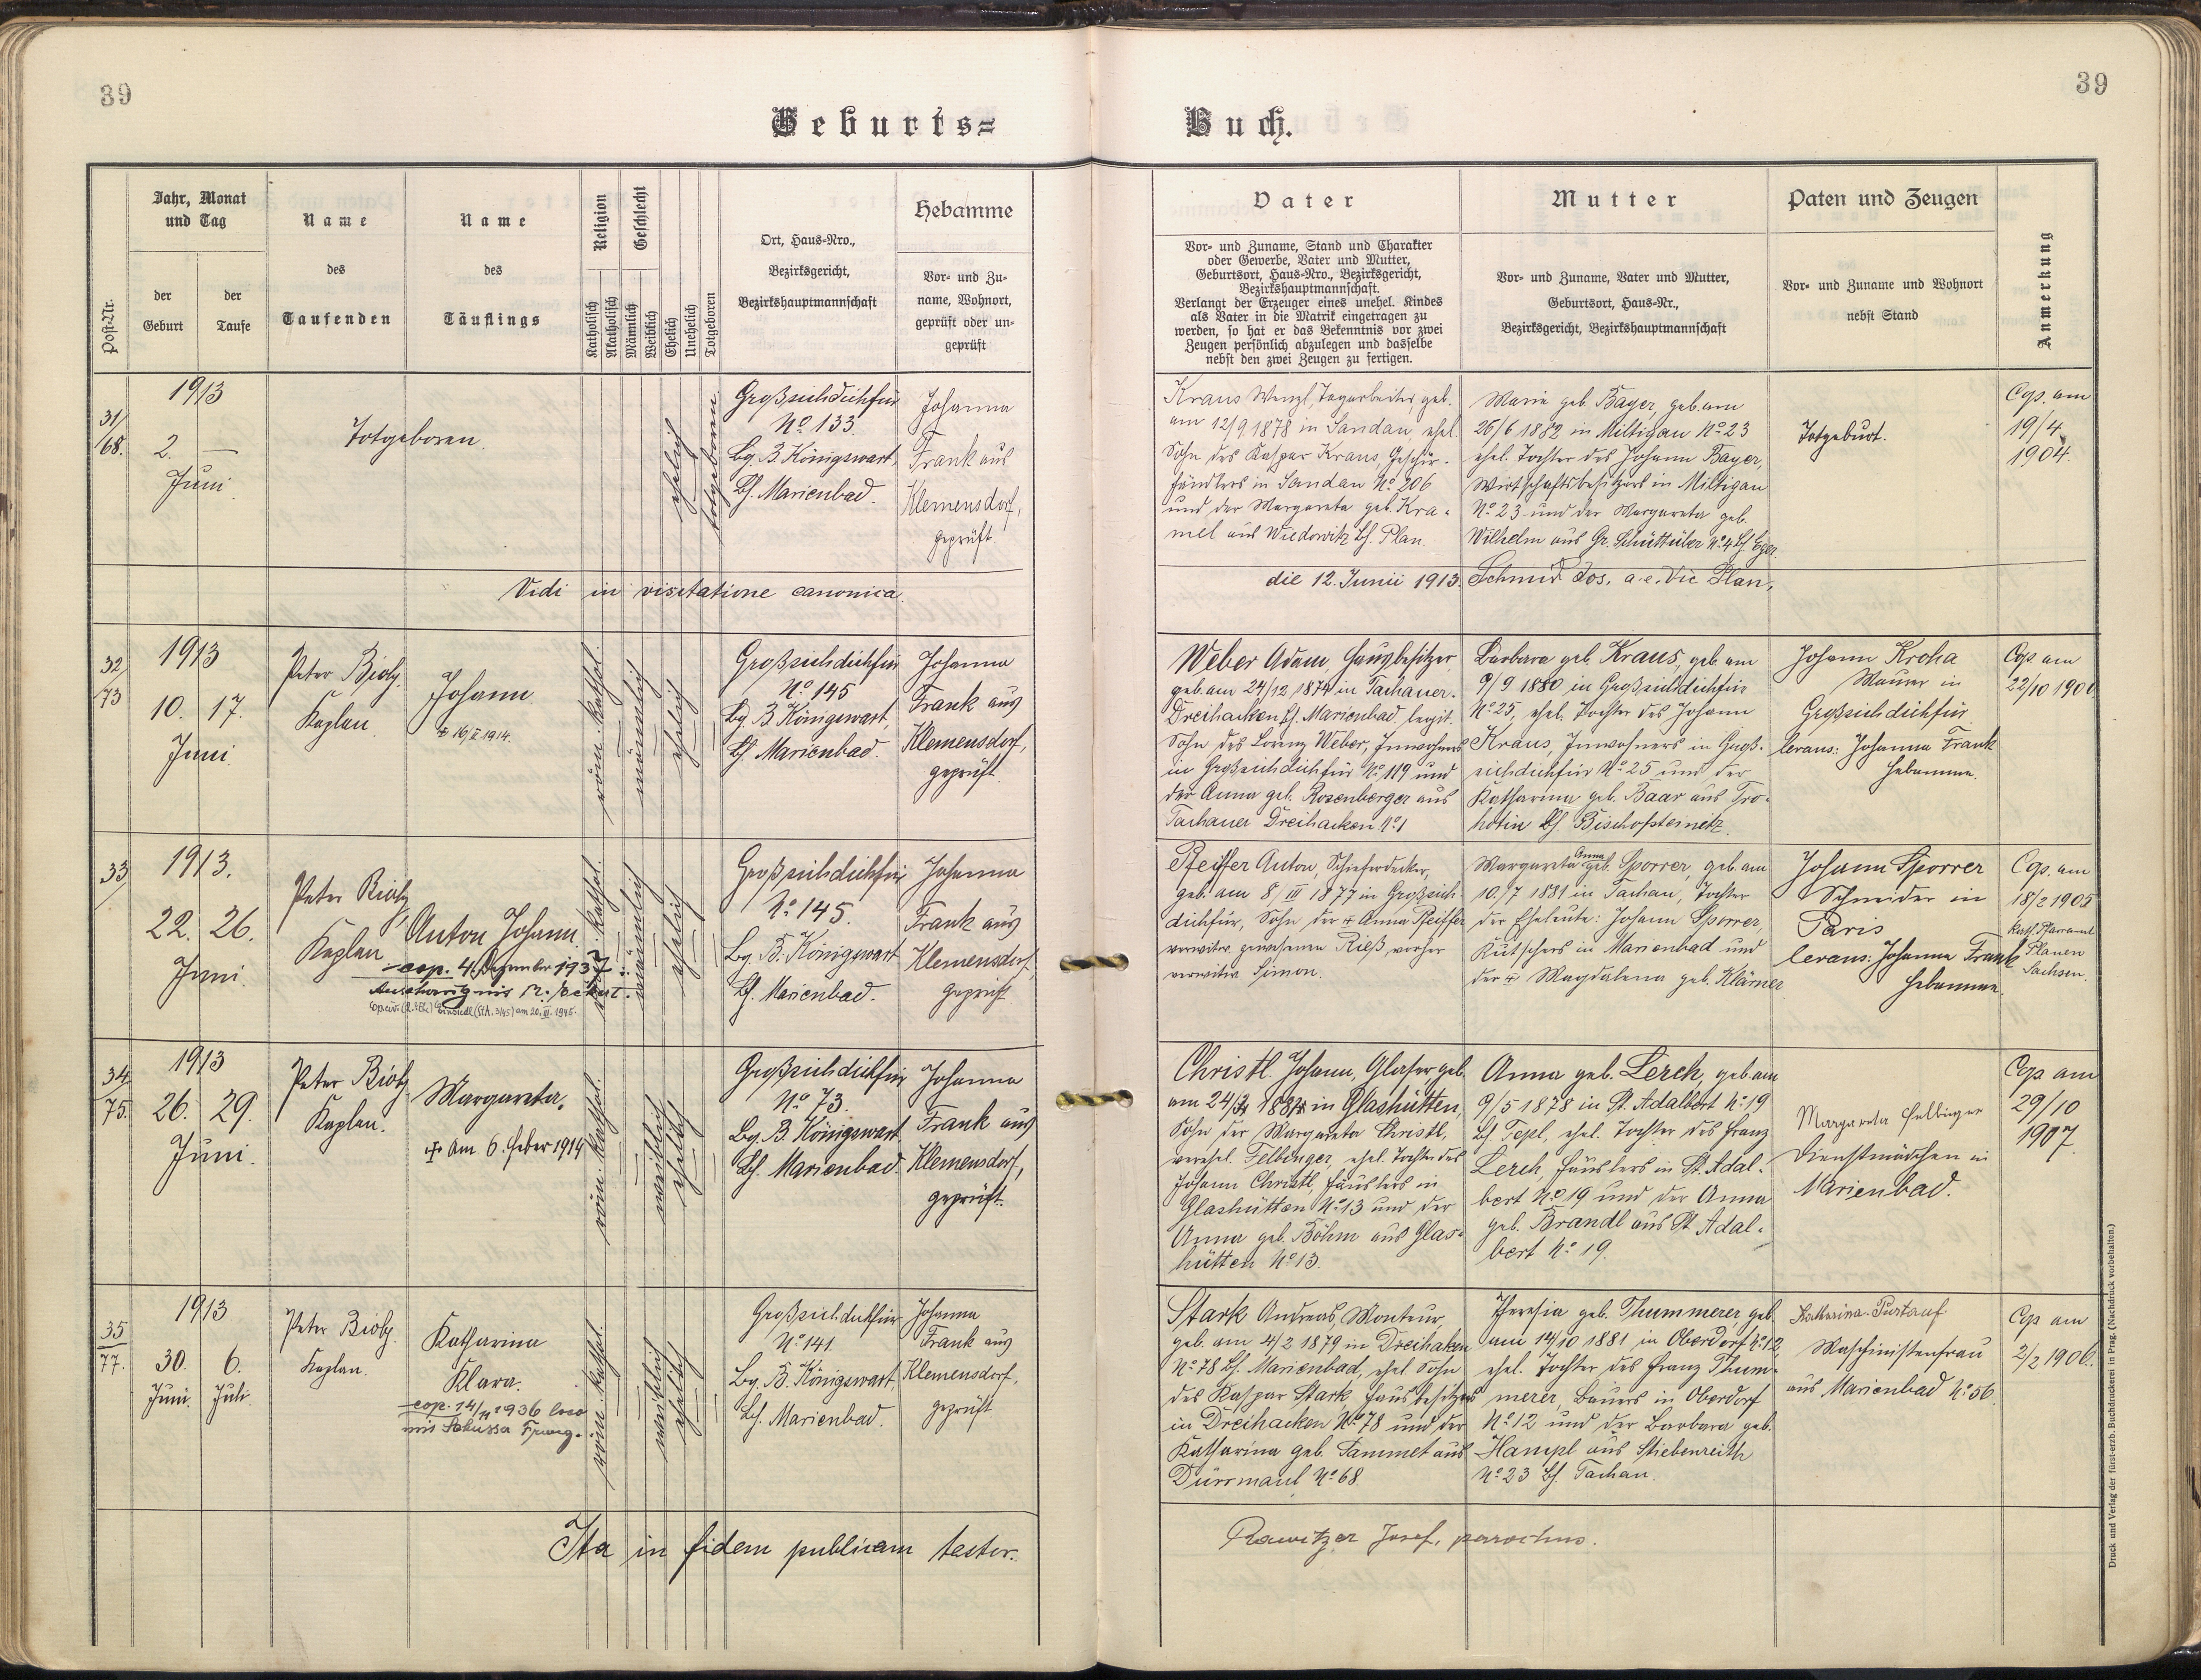 39
39
Geburts=
Buch.
Post-Nr.
Jahr, Monat
und Tag
der
Geburt
der
Taufe
Name
des
Taufenden
Name
des
Täuflings
Religion
Katholisch
Akatholisch
Geschlecht
Männlich
Weiblich
Ehelich
Unehelich
Totgeboren
Ort, Haus-Nro.,
Bezirksgericht,
Bezirkshauptmannschaft
Hebamme
Vor- und Zu-
name, Wohnort,
geprüft oder un-
geprüft
Vater
Vor- und Zuname, Stand und Charakter
oder Gewerbe, Vater und Mutter,
Geburtsort, Haus-Nro., Bezirksgericht,
Bezirkshauptmannschaft.
Verlangt der Erzeuger eines unehel. Kindes
als Vater in die Matrik eingetragen zu
werden, so hat er das Bekenntnis vor zwei
Zeugen persönlich abzulegen und dasselbe
nebst den zwei Zeugen zu fertigen.
Mutter
Vor- und Zuname, Vater und Mutter,
Geburtsort, Haus-Nr.,
Bezirksgericht, Bezirkshauptmannschaft
Paten und Zeugen
Vor- und Zuname und Wohnort
nebst Stand
Anmerkung
31/68.
1913
2. —
Juni.
Totgeboren.
ehelich
totgeboren
Großsichdichfür
No 133.
Bg. B. Königswart,
Bh. Marienbad.
Johanna
Frank aus
Klemensdorf,
geprüft
Kraus Wenzl, Tagarbeiter, geb.
am 12/9 1878 in Sandau, ehel.
Sohn des Kaspar Kraus, Geschir-
händlers in Sandau No 206
und der Margareta geb. Kra-
mel aus Wiedowitz Bh. Plan.
Marie geb. Bayer, geb. am
26/6 1882 in Miltigau No 23
ehel. Tochter des Johann Bayer,
Wirtschaftsbesitzers in Miltigau
No 23 und der Margareta geb.
Wilhelm aus Gr. Schüttüber No 4 Bh. Eger.
Totgeburt.
Cop. am
19/4
1904.
Vidi in visitatione canonica.
die 12. Junii 1913. Schmid Jos. a.e. Vic Plan,
32/73
1913
10. 17.
Juni.
Peter Bioly,
Kaplan.
Johann
16/II 1914.
röm. kathol.
männlich
ehelich
Großsichdichfür
No 145
Bg. B. Königswart,
Bh. Marienbad.
Johanna
Frank aus
Klemensdorf,
geprüft.
Weber Adam, Hausbesitzer
geb. am 24/12 1874 in Tachauer-
Dreihacken Bh. Marienbad, legit.
Sohn des Lorenz Weber, Inwohners
in Großsichdichfür No 119 und
der Anna geb. Rosenberger aus
Tachauer Dreihacken No 1
Barbara geb. Kraus, geb. am
9/9 1880 in Großsichdichfür
No 25, ehel. Tochter des Johann
Kraus, Inwohners in Groß-
sichdichfür No 25 und der
Katharina geb. Baar aus Tro-
hotin Bh. Bischofteinitz.
Johann Kroha
Maurer in
Großsichdichfür
levans: Johanna Frank
Hebamme.
Cop. am
22/10 1900
33/
1913.
22. 26.
Juni.
Peter Bioly,
Kaplan
Anton Johann.
cop. 4. Dezember 1937
röm. kathol.
männlich
ehelich
Großsichdichfür
No 145.
Bg. B. Königswart
Bh. Marienbad.
Johanna
Frank aus
Klemensdorf,
geprüft.
Pfeiffer Anton, Schieferdecker,
geb. am 8/III 1877 in Großsich-
dichfür, Sohn der + Anna Pfeiffer
verwitw. gewesenen Rieß, vorher
verwitw. Simon.
Margareta Anna geb. Sporrer, geb. am
10./7 1881 in Tachau, Tochter
der Eheleute: Johann Sporrer,
Kutschers in Marienbad und
der + Magdalena geb. Klärner
Johann Sporrer
Schneider in
Paris
levans: Johanna Frank
Hebamme.
Cop. am
18/2 1905
Kath. Pfarramt
Plauen
Sachsen.
34/75.
1913
26. 29.
Juni.
Peter Bioly
Kaplan.
Margareta.
+ am 6. Feber 1914
röm. kathol.
weiblich
ehelich
Großsichdichfür
No 73.
Bg. B. Königswart,
Bh. Marienbad.
Johanna
Frank aus
Klemensdorf,
geprüft.
Christl Johann, Glaser, geb.
in Glashütten,
Sohn der Margareta Christl,
verehel. Felbinger, ehel. Tochter des
Johann Christl, Häuslers in
Glashütten No 13 und der
Anna geb. Böhm aus Glas-
hütten No 13.
Anna geb. Lerch, geb. am
9/5 1878 in St. Adalbert No 19
Bh. Tepl, ehel. Tochter des Franz
Lerch, Häuslers in St. Adal-
bert No 19 und der Anna
geb. Brandl aus St. Adal-
bert No 19.
Margareta Felbinger
Dienstmädchen in
Marienbad.
Cop. am
29/10
1907.
35/77.
1913
30. 6.
Juni. Juli.
Peter Bioly.
Kaplan.
Katharina
Klara.
cop. 14/11 1936 loco
röm. kathol.
weiblich
ehelich
Großsichdichfür
No 141.
Bg. B. Königswart,
Bh. Marienbad.
Johanna
Frank aus
Klemensdorf,
geprüft
Stark Andreas, Monteur,
geb. am 4/2 1879 in Dreihaken
No 78 Bh. Marienbad, ehel. Sohn
des Kaspar Stark, Hausbesitzers
in Dreihacken No 78 und der
Katharina geb. Tammet aus
Dürrmaul No 68.
Theresia geb. Thummerer, geb.
am 14/10 1881 in Oberdorf No 12,
ehel. Tochter des Franz Thum-
merer, Bauers in Oberdorf
No 12 und der Barbara geb.
Hampl aus Stiebenreith
No 23 Bh. Tachau.
Katharina
Maschinistenfrau
aus Marienbad No 56.
Cop. am
2/2 1906.
Ita in fidem publicam testor.
Rawitzer Josef, parochus.
Druck und Verlag der fürst-erzb. Buchdruckerei in Prag. (Nachdruck vorbehalten.)